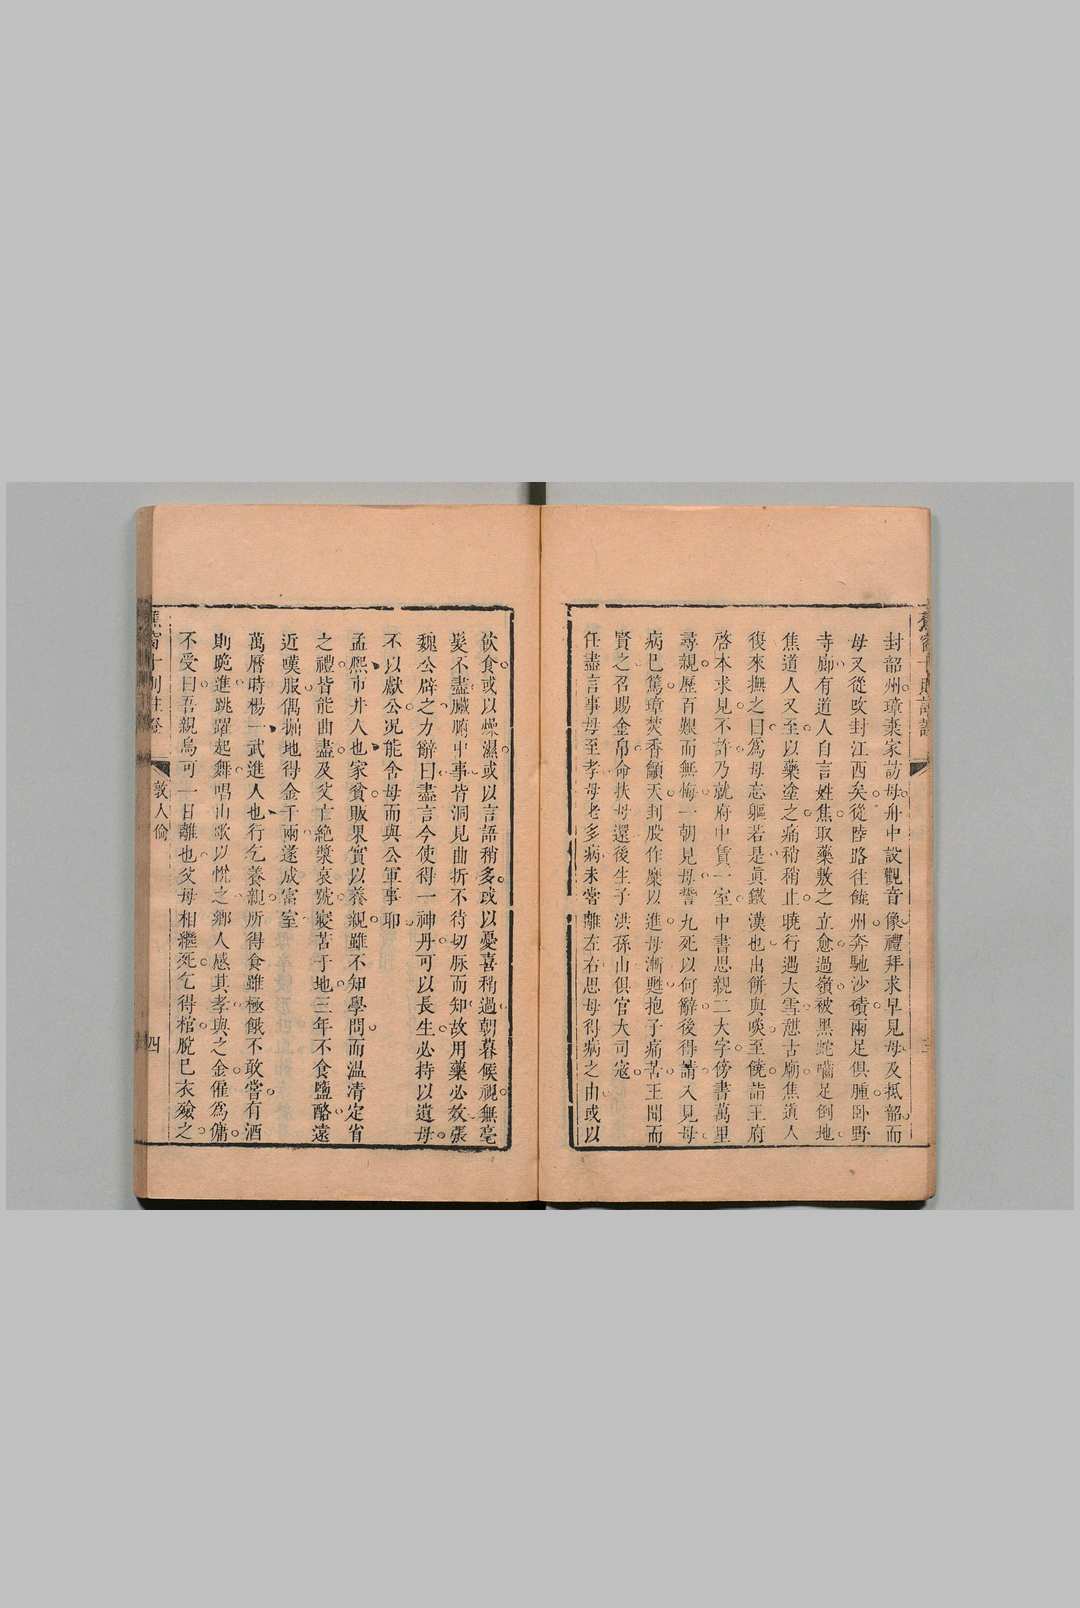 封韶州璋棄家訪母舟中設觀音像禮拜求早見母及抵韶而
母又從改封江西矣從陸路往饒州奔馳沙磧兩足俱腫臥野
寺廊有道人自言姓焦取藥敷之立愈過嶺被黑蛇嚙足倒地
焦道人又至以藥塗之痛稍稍止曉行遇大雪憇古廟焦道人
復來撫之曰爲母忘軀若是眞鐵漢也出餅與啖至饒詣王府
啓本求見不許乃就府中賃一室中書思親二大字傍書萬里
尋親歷百艱而無悔一朝見母誓九死以何辭後得請入見母
病已篤璋焚香籲天刲股作糜以進母漸甦抱子痛苦王聞而
賢之召賜金帛命扶母還後生子洪孫山俱官大司寇
任盡言事母至孝母老多病未嘗離左右思母得病之由或以
飲食或以燥濕或以言語稍多或以憂喜稍過朝暮候視無毫
髮不盡臟腑中事皆洞見曲折不待切脉而知故用藥必效張
魏公辟之力辭曰盡言今使得一神丹可以長生必持以遺母
不以獻公况能舍母而與公軍事耶
孟熙市井人也家貧販果實以養親雖不知學問而溫凊定省
之禮皆能曲盡及父亡絶漿哀號寢苫于地三年不食鹽酪遠
近嘆服偶掘地得金千兩遂成富室
萬曆時楊一武進人也行乞養親所得食雖極餓不敢嘗有酒
則跪進跳躍起舞唱山歌以悅之鄉人感其孝與之金僱爲傭
不受曰吾親烏可一日離也父母相繼死乞得棺脫已衣殮之
敦人倫
四